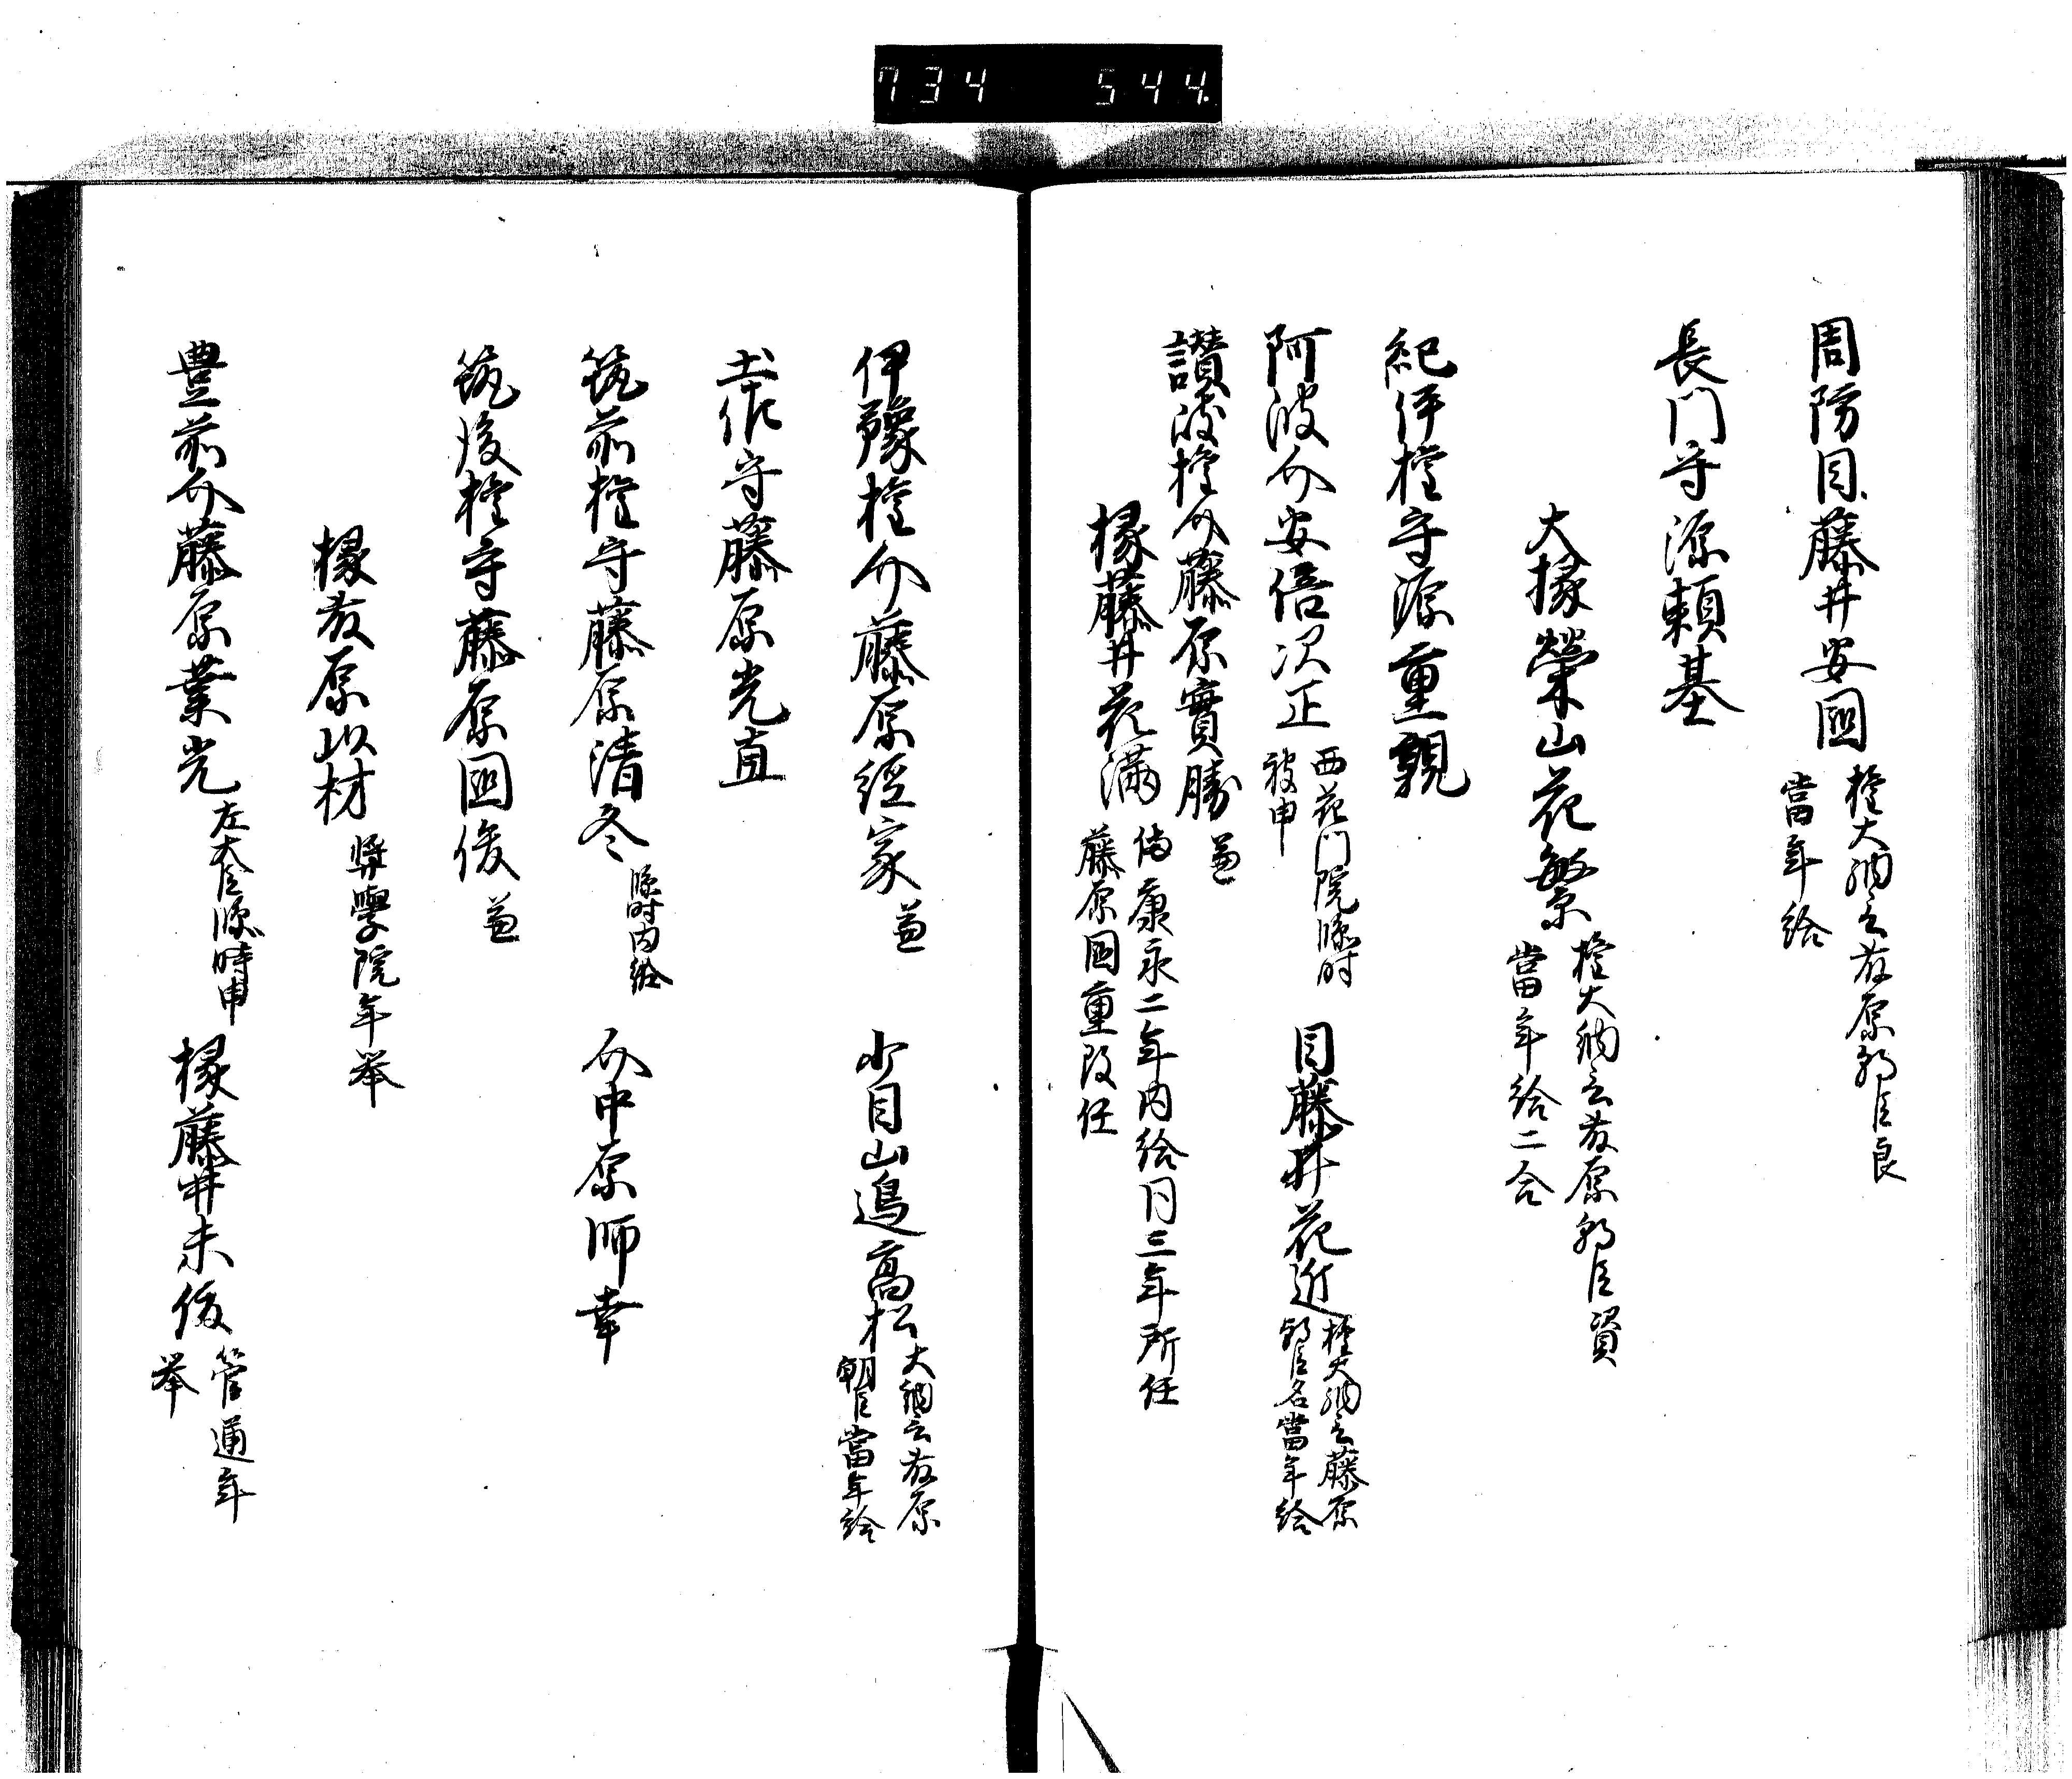 734 544
周防目藤井安国 権大納言藤原朝臣良
當年給
長門守源頼基
大掾榮山花繁 権大納言藤原朝臣資
當年給二合
紀伊権守源重親
阿波介安倍次正 西花門院臨时
被申
目藤井花近 権大納言藤原
朝臣名當年給
讃波権介藤原實勝 兼
掾藤井花満 停康永二年内給同三年所任
藤原国重改任
伊豫権介藤原經家 兼
少目山邉高松 大納言藤原
朝臣當年給
土作守藤原光直
筑前権守藤原清冬 臨时内給
介中原師幸
筑後権守藤原国俊 兼
掾藤原以材 奨學院年挙
豊前介藤原業光 左大臣臨時申
掾藤井末俊 管通年
挙